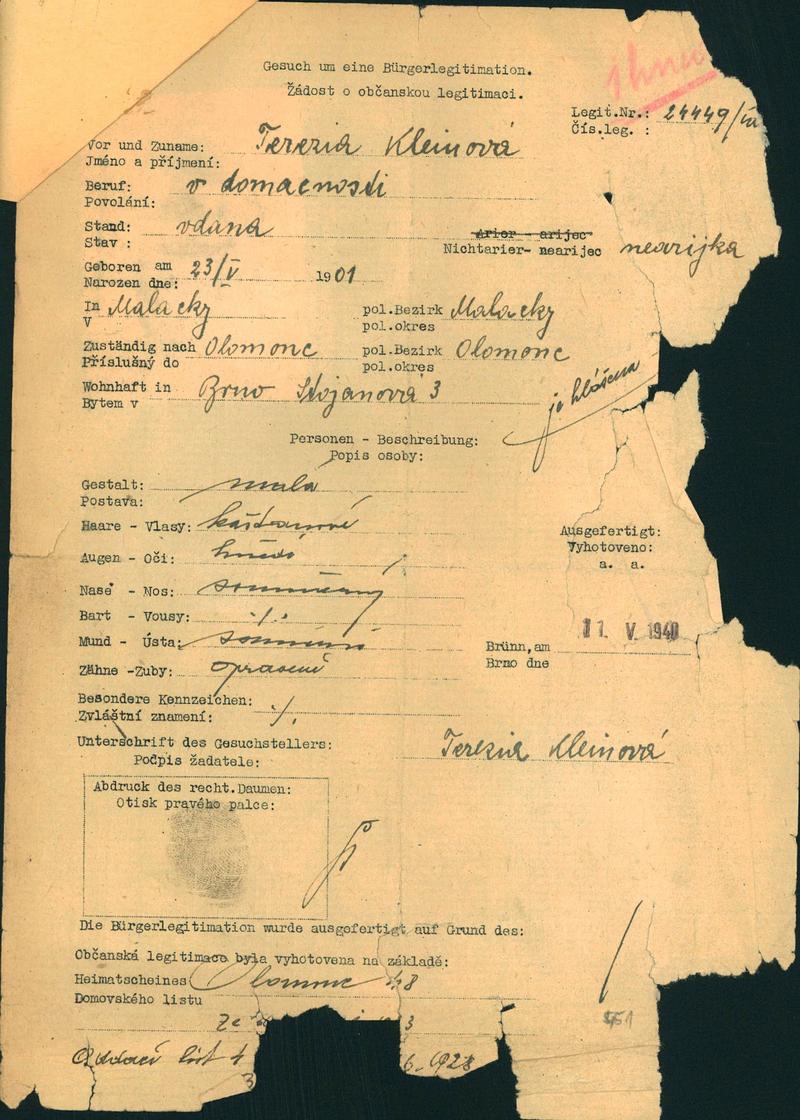 Gesuch um eine Bürgerlegitimation.
Žádost o občanskou legitimaci.
Legit.Nr.: 24449/III
Čís.leg. :
Vor und Zuname: Terezia Kleinová
Jméno a příjmení:
Beruf: v domacnosti
Povolání:
Stand: vdana
Stav :
Arier - arijec
Nichtarier- nearijec nearijka
Geboren am 23/V 1901
Narozen dne:
In Malacky pol.Bezirk Malacky
V pol.okres
Zuständig nach Olomouc pol.Bezirk Olomouc
Příslušný do pol.okres
Wohnhaft in Brno Stojanova 3
Bytem v
je hlášena
Personen - Beschreibung:
Popis osoby:
Gestalt: malá
Postava:
Haare - Vlasy: kaštanové
Augen - Oči: hnědé
Ausgefertigt:
Vyhotoveno:
a. a.
Nase - Nos: souměrný
Bart - Vousy: ./.
Mund - Ústa: souměrná
11 V. 1940
Brünn, am
Brno dne
Zähne -Zuby: opravené
Besondere Kennzeichen:
Zvláštní znamení: ./.
Unterschrift des Gesuchstellers: Terezia Kleinová
Podpis žadatele:
Abdruck des recht. Daumen:
Otisk pravého palce:
Die Bürgerlegitimation wurde ausgefertigt auf Grund des:
Občanská legitimace byla vyhotovena na základě:
Heimatscheines Olomouc
Domovského listu
551
Oddací list
1928